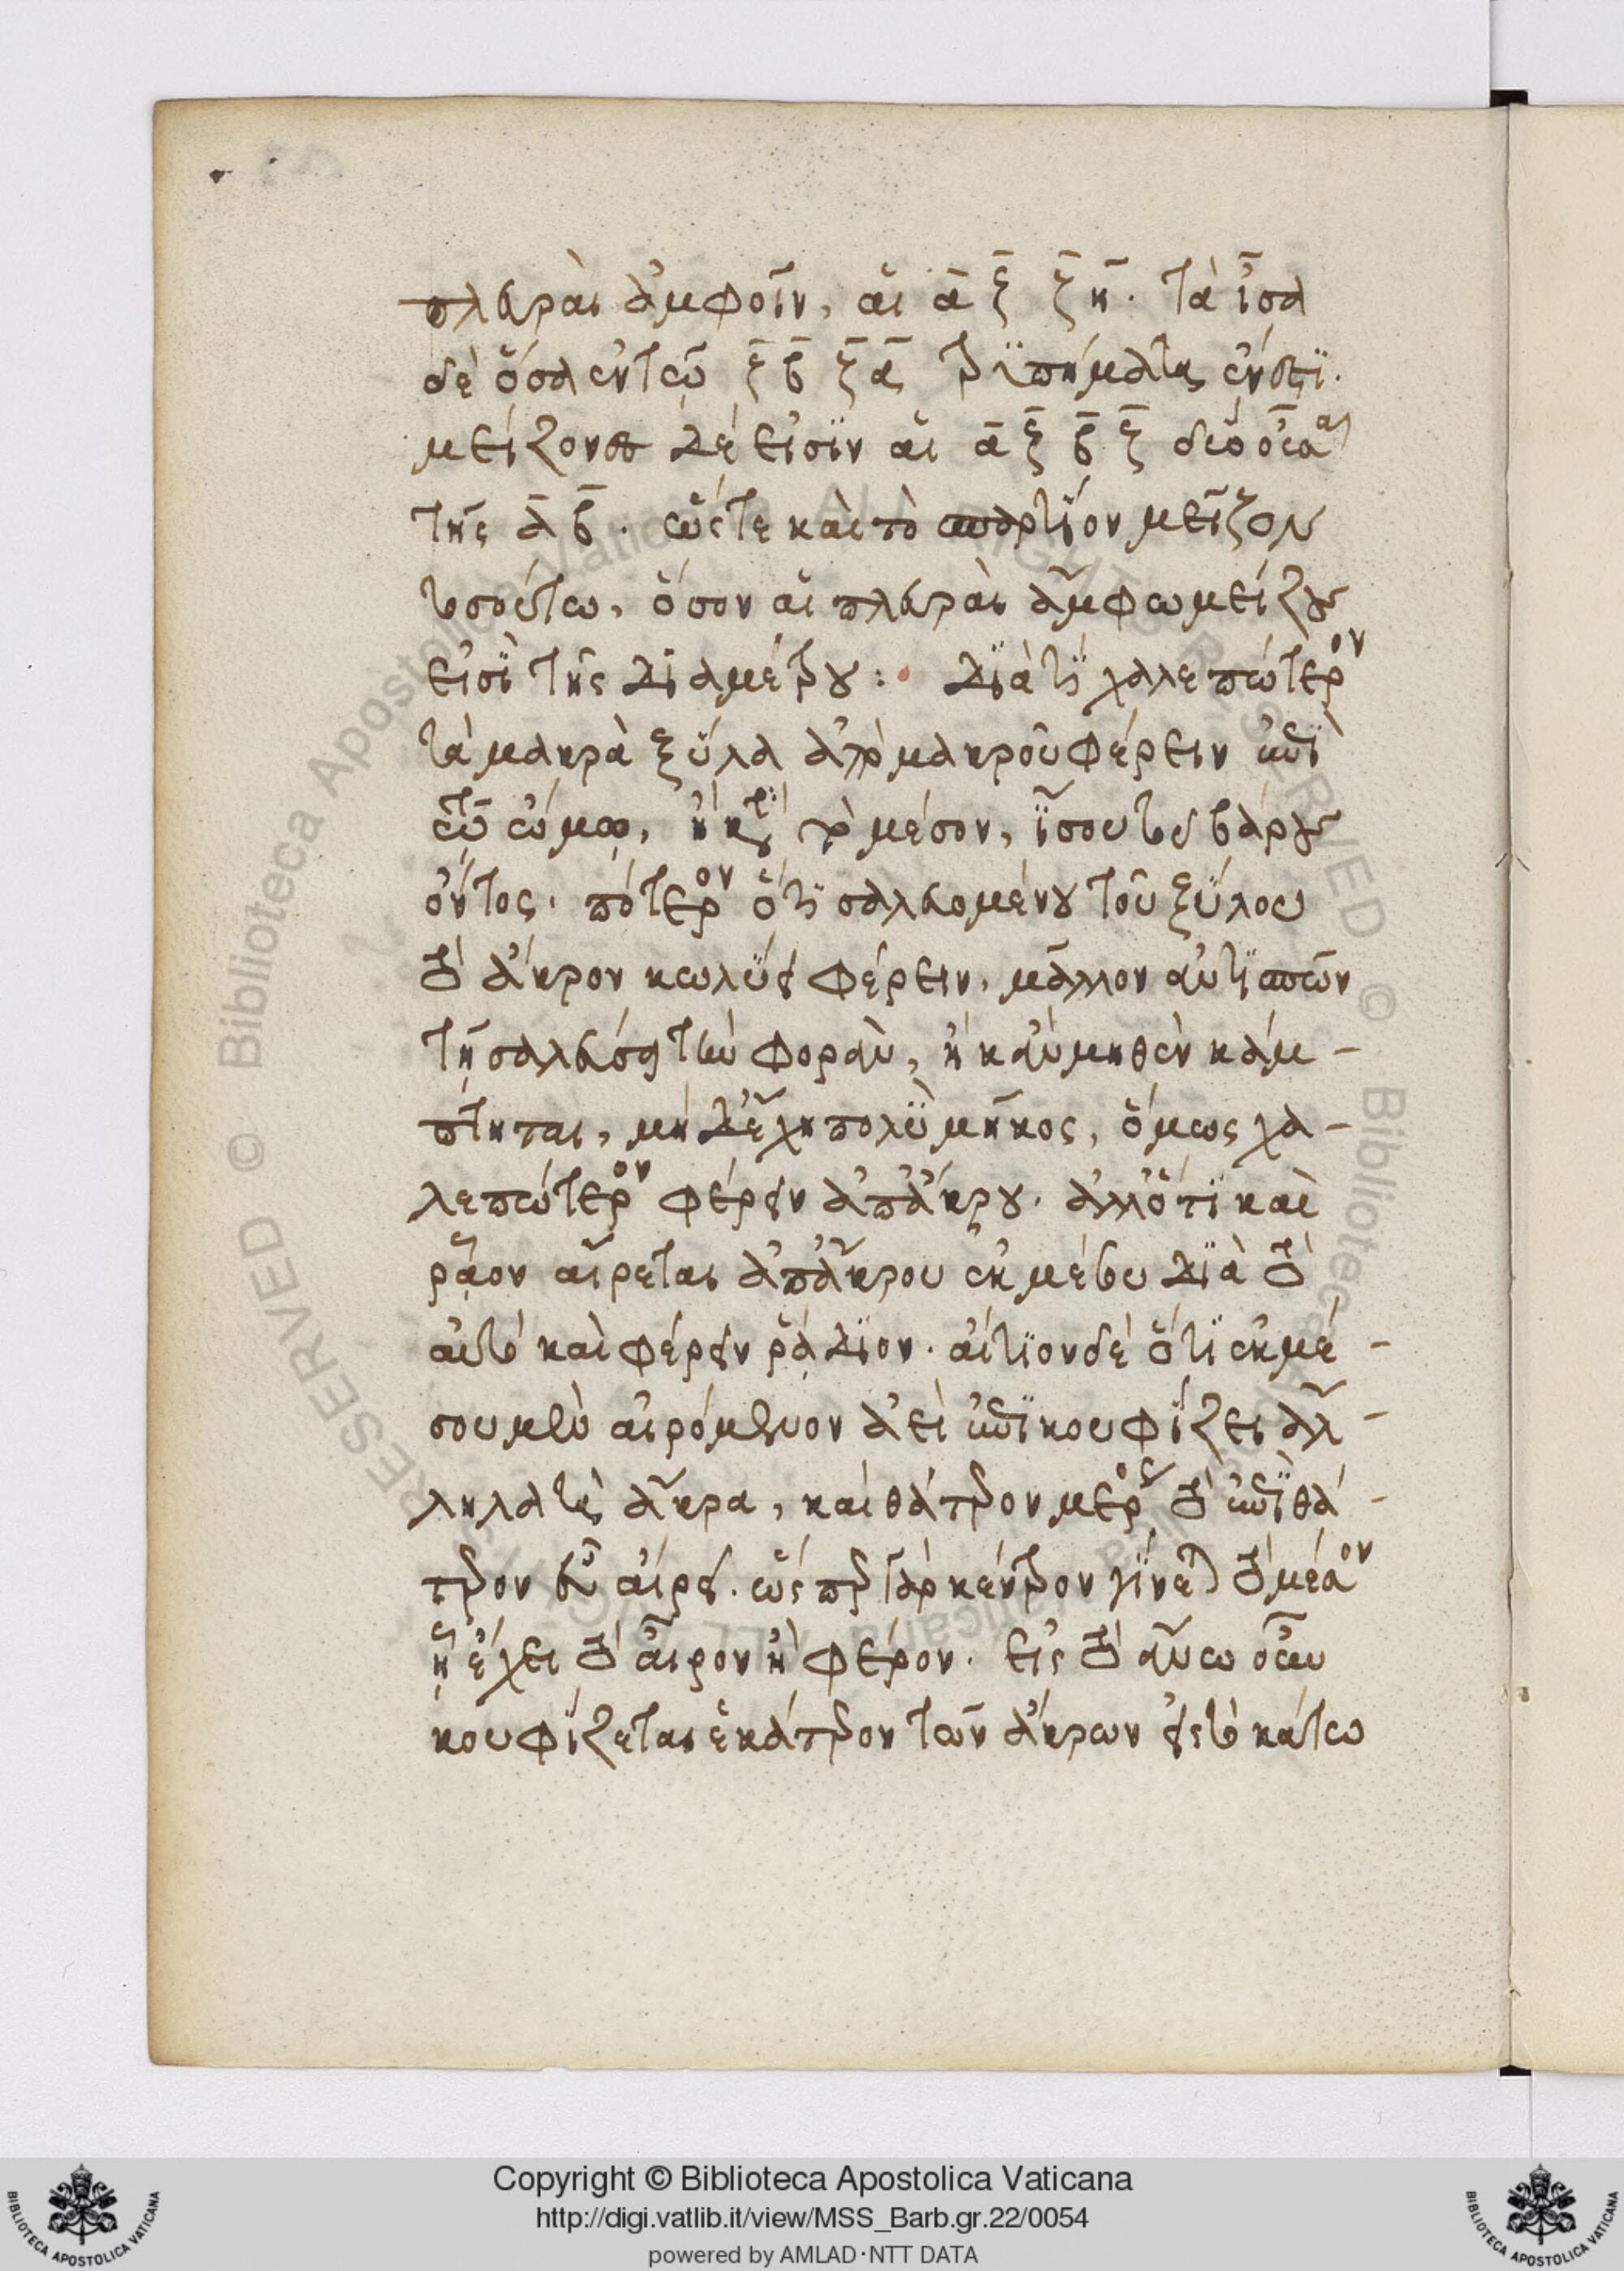 πλευραὶ ἀμφοῖν, αἱ α̅ ξ̅ ξ̅ η̅. τὰ ἴσα
δὲ ὅσα ἐν τῷ ξ̅ β̅ ξ̅ α̅ τρυπήματα ἔνεστι.
μείζονες δέ εἰσιν αἱ α̅ ξ̅ β̅ ξ̅
τῆς α̅ β̅. ὥστε καὶ τὸ σπαρτίον μεῖζον
τοσούτω, ὅσον αἱ πλευραὶ ἄμφω μείζους
εἰσὶ τῆς διαμέτρου: διατί χαλεπώτερον
τὰ μακρὰ ξύλα ἀπὸ μακροῦ φέρειν ἐπὶ
τῷ ὤμῳ, ἢ κατὰ τὸ μέσον, ἴσου τοῦ βάρους
ὄντος. πότερον ὅτι σαλευομένου τοῦ ξύλου
τὸ ἄκρον κωλύει φέρειν, μᾶλλον ἀντισπῶν
τῇ σαλεύσει τὴν φορὰν, ἢ κἂν μηθὲν κάμ-
πτηται, μὴ δ' ἔχῃ πολὺ μῆκος, ὅμως χα-
λεπώτερον φέρειν ἀπ' ἄκρου. ἀλλ' ὅτι καὶ
ρᾷον αἴρεται ἀπ' ἄκρου ἐκ μέσου διὰ τὸ
αὐτὸ καὶ φέρειν ρᾴδιον. αἴτιον δὲ ὅτι ἐκ μέ-
σου μὲν αἰρόμενον ἀεὶ ἐπικουφίζει ἄλ-
ληλα τὰ ἄκρα, καὶ θάτερον μέρος τὸ ἐπὶ θά-
τερον εὖ αἴρει. ὥσπερ γὰρ κέντρον γίνεται τὸ μέσον
ᾗ ἔχει τὸ αἶρον ἢ φέρον. εἰς τὸ ἄνω οὖν
κουφίζεται ἑκάτερον τῶν ἄκρων εἰς τὸ κάτω
Copyright © Biblioteca Apostolica Vaticana
http://digi.vatlib.it/view/MSS_Barb.gr.22/0054
powered by AMLAD·NTT DATA